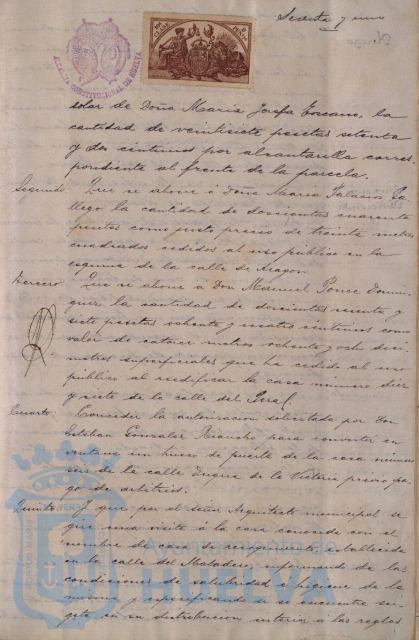 Sesenta y uno
ALCALDIA CONSTITUCIONAL DE HUELVA
solar de Doña Maria Josefa Toscano, la
cantidad de veintisiete pesetas setenta
y dos centimos por alcantarilla corres-
pondiente al frente de la parcela.
Segundo: Que se abone á Doña Maria Palacio Ga-
llego la cantidad de doscientas cuarenta
pesetas como justo precio de treinta metros
cuadrados cedidos al uso público en la
esquina de la calle de Aragon.
Tercero: Que se abone á Don Manuel Ponce Domin-
guez la cantidad de doscientas sesenta y
siete pesetas ochenta y cuatro centimos como
valor de catorce metros ochenta y ocho deci-
metros superficiales que ha cedido al uso
público al reedificar la casa número diez
y siete de la calle del Peral.
Cuarto: Conceder la autorizacion solicitada por Don
Esteban Gonzalez para convertir en
ventana un hueco de puerta de la casa número
seis de la calle de la Victoria previo pa-
go de arbitrios.
Quinto: Y que por el señor Arquitecto municipal se
gire una visita á la casa conocida con el
nombre de casa de establecida
en la calle del Matadero, informando de las
condiciones de salubridad é higiene de la
misma y especificando si se encuentra suje-
ta en su distribucion interior á las reglas
Ayuntamiento de
HUELVA